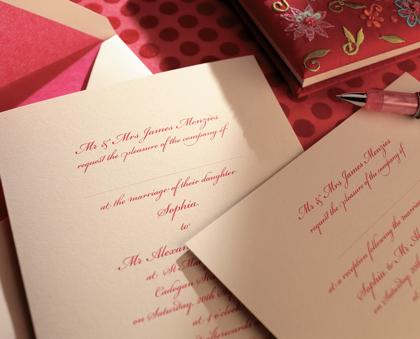 Mr & Mrs James Menzies
request the pleasure of the company of
at the marriage of their daughter
Sophia
to
Mr Alexan
at St M
Cadogan St
on Saturday, 20th
at 4 o'c
Mr & Mrs James Menzies
request the pleasure of the company of
at a reception following the mar
Sophia to Mr Al
on Saturday
at